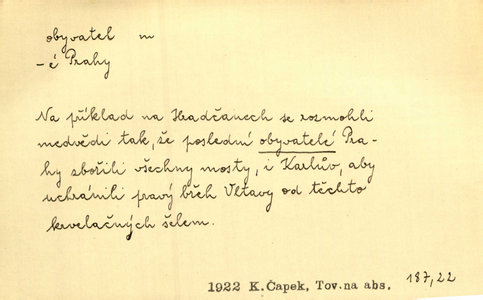 obyvatel m
-é Prahy
Na příklad na Hradčanech se rozmohli
medvědi tak, že poslední obyvatelé Pra-
hy zbořili všechny mosty, i Karlův, aby
uchránili pravý břeh Vltavy od těchto
krvelačných šelem.
1922 K.Čapek, Tov.na abs. 187,22